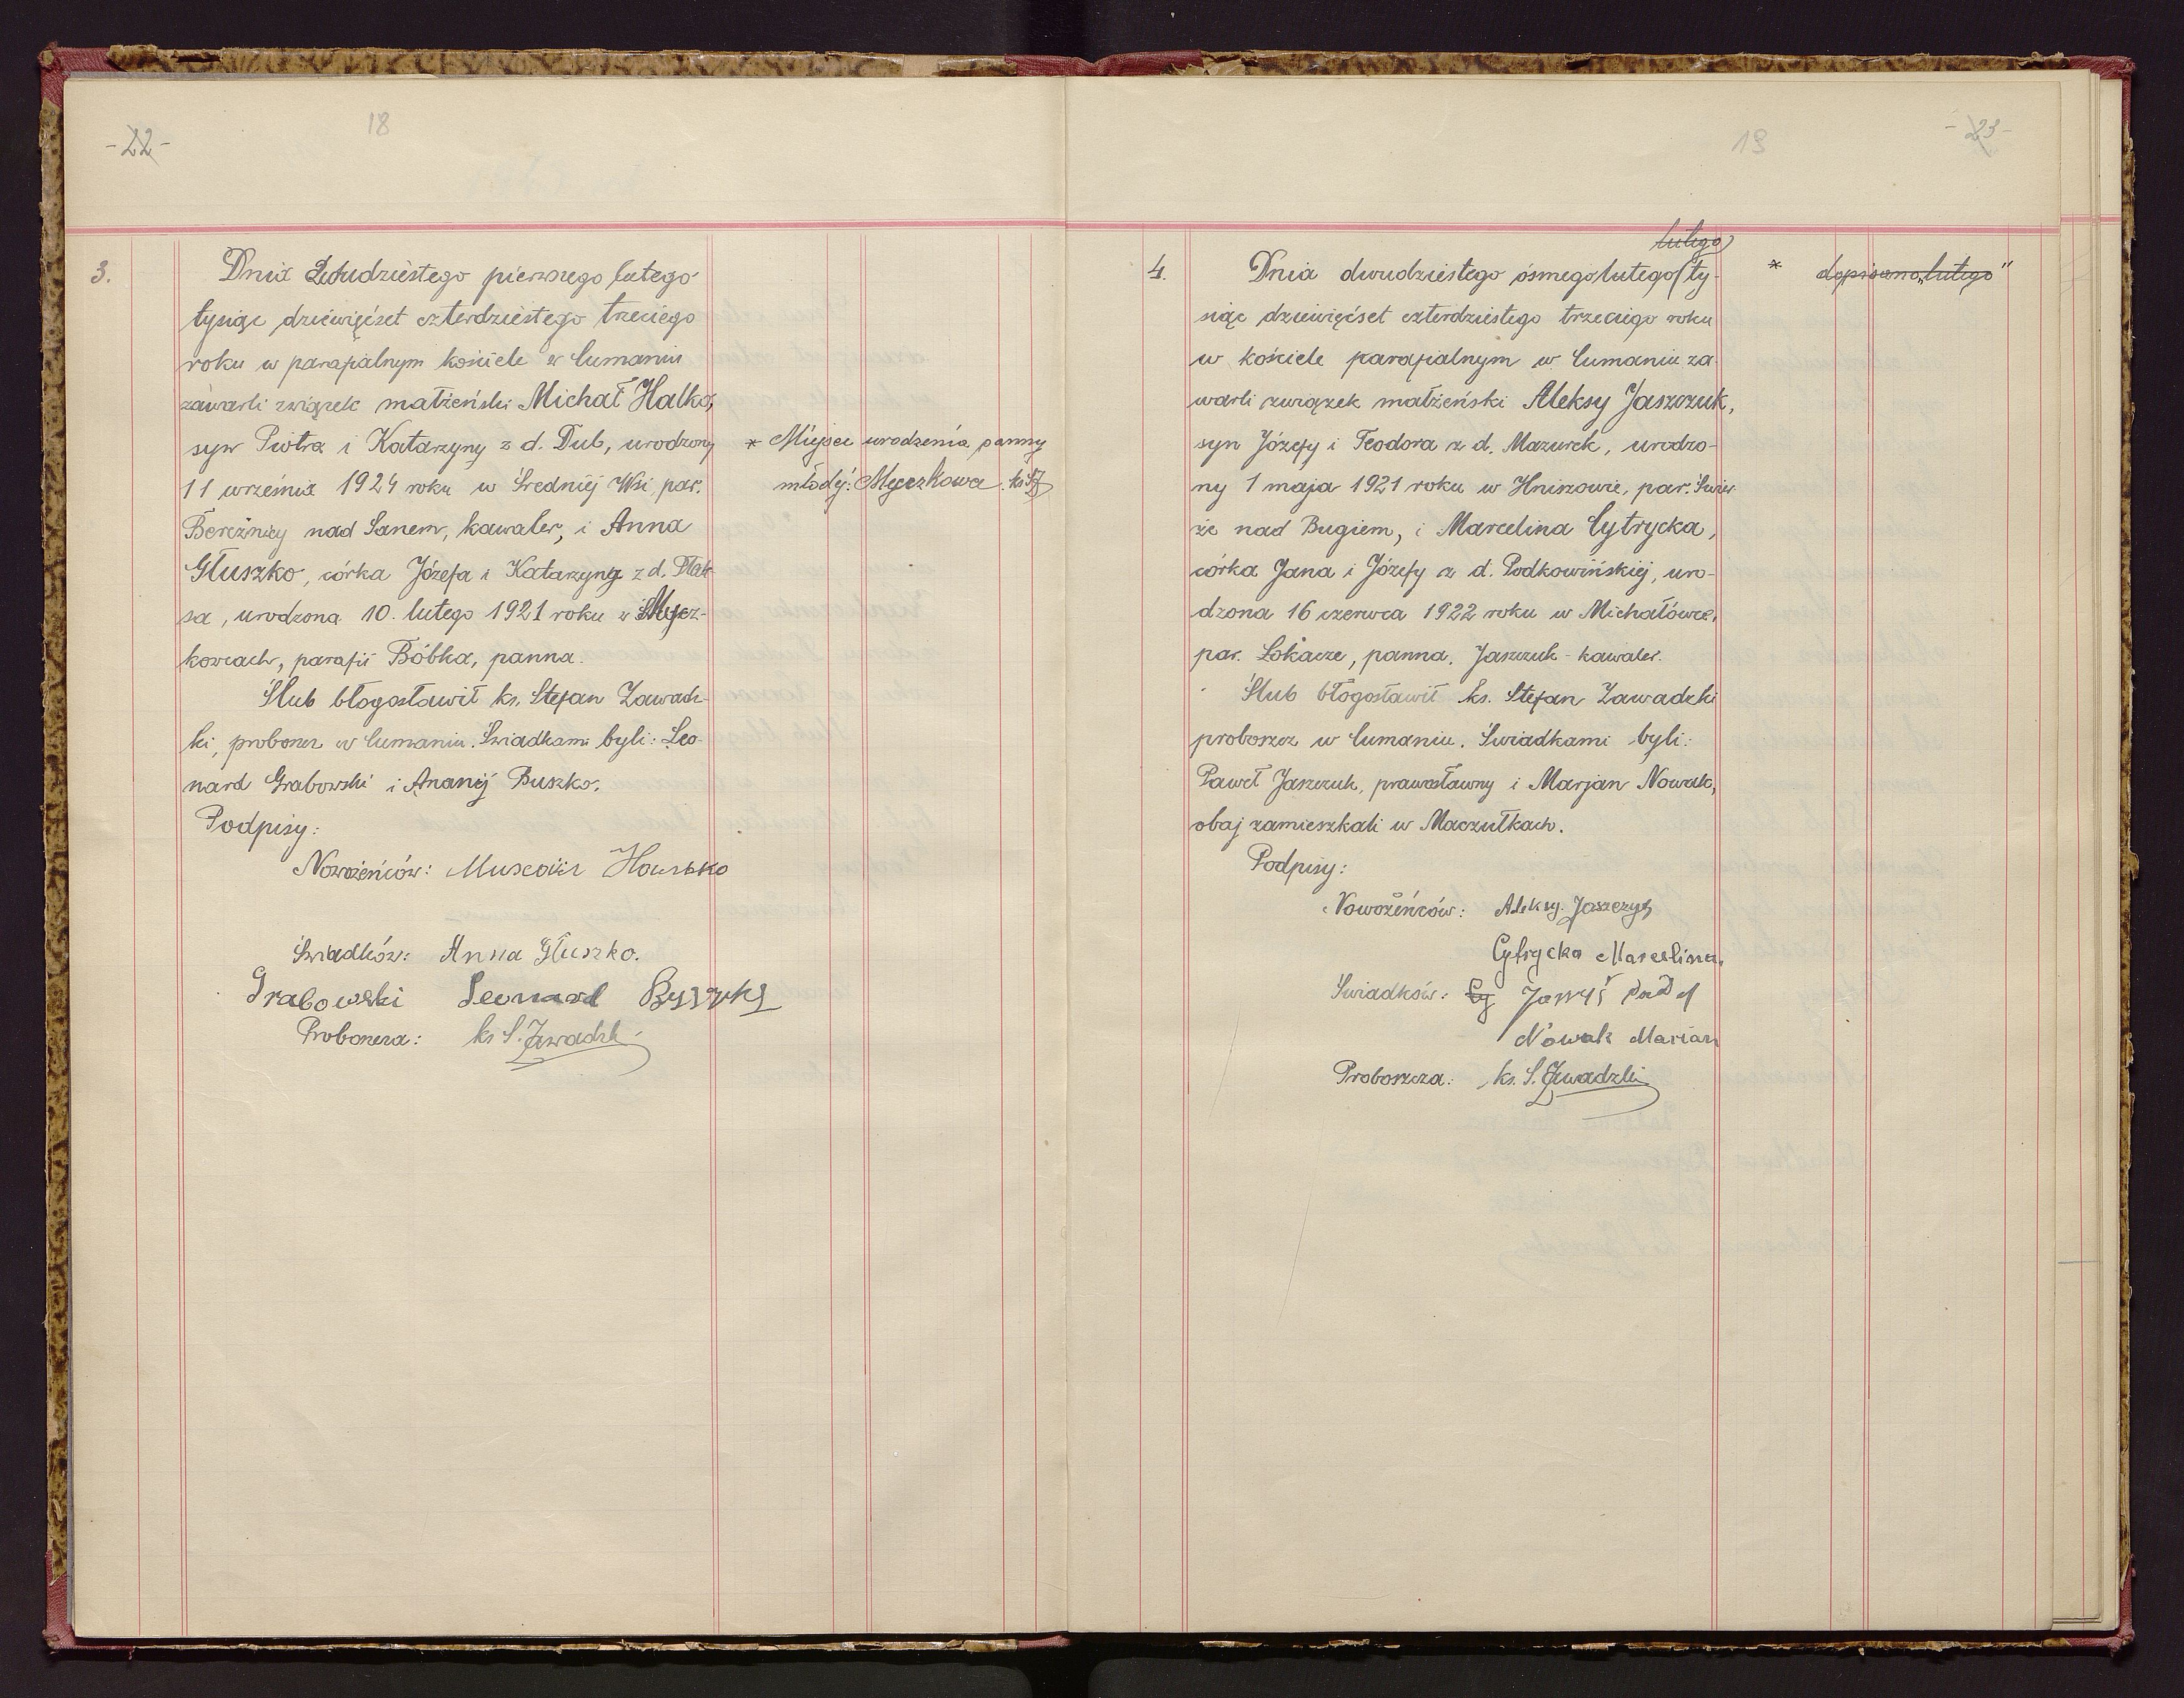 -22-
18
3.
Dnia Dwudziestego pierwszego lutego
tysiąc dziewięćset czterdziestego trzeciego
roku w parafialnym kościele w Cumaniu
zawarli związek małżeński Michał Halko,
syn Piotra i Katarzyny z d. Dub, urodzony
11 września 1924 roku w Średniej Wsi, par.
Bereźnicy nad Sanem, kawaler, i Anna
Głuszko, córka Józefa i Katarzyny z d.
sa, urodzona 10. lutego 1921 roku w Mycz-
kowcach, parafii Bóbka, panna.
Ślub błogosławił ks. Stefan Zawadz-
ki, proboszcz w Cumaniu. Świadkami byli: Leo-
nard Grabowski i Ananij Buszko.
Podpisy:
Nowożeńców:
Świadków: Anna Głuszko.
Grabowski Leonard
Proboszcza: ks S. Zawadzki
* Miejsce urodzenia panny
młodej: Myczkowce. ks SZ
13
-23-
4.
lutego
Dnia dwudziestego ósmego lutego ty-
siąc dziewięćset czterdziestego trzeciego roku
w kościele parafialnym w Cumaniu za-
warli związek małżeński Aleksy Jaszczuk,
syn Józefy i Teodora z d. Mazurek, urodzo-
ny 1 maja 1921 roku w Hniszowie, par. Świer-
że nad Bugiem, i Marcelina Cytrycka,
córka Jana i Józefy z d. Podkowińskiej, uro-
dzona 16 czerwca 1922 roku w Michałówce,
par. Łokacze, panna. Jaszczuk - kawaler.
Ślub błogosławił ks. Stefan Zawadzki
proboszcz w Cumaniu. Świadkami byli:
Paweł Jaszczuk, prawosławny i Marjan Nowak,
obaj zamieszkali w Maczułkach.
Podpisy:
Nowożeńców: Aleksy Jaszczuk
Cytrycka Marcelina.
Świadków: Cy
Nowak Marian
Proboszcza: ks. S. Zawadzki
* dopisano „lutego"